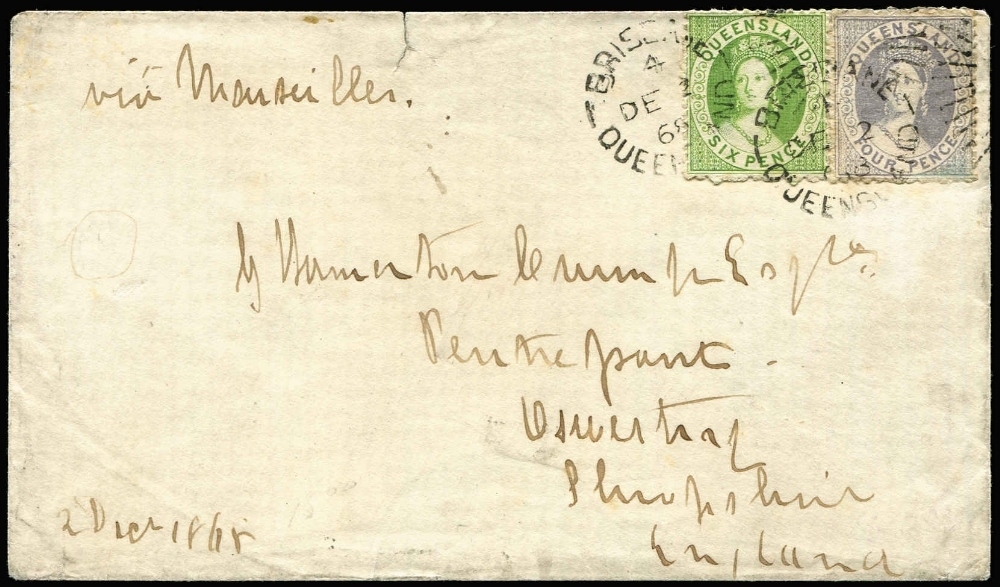 viâ Marseilles.
BRISBANE
4
DE
68
QUEEN
QUEENSLAND
SIX PENCE
QUEENSLAND
FOUR PENCE
QUEENSL
G Hamerton Crump Esqre
Pentrepant -
Oswestry
Shropshire
England
2 Decr 1868